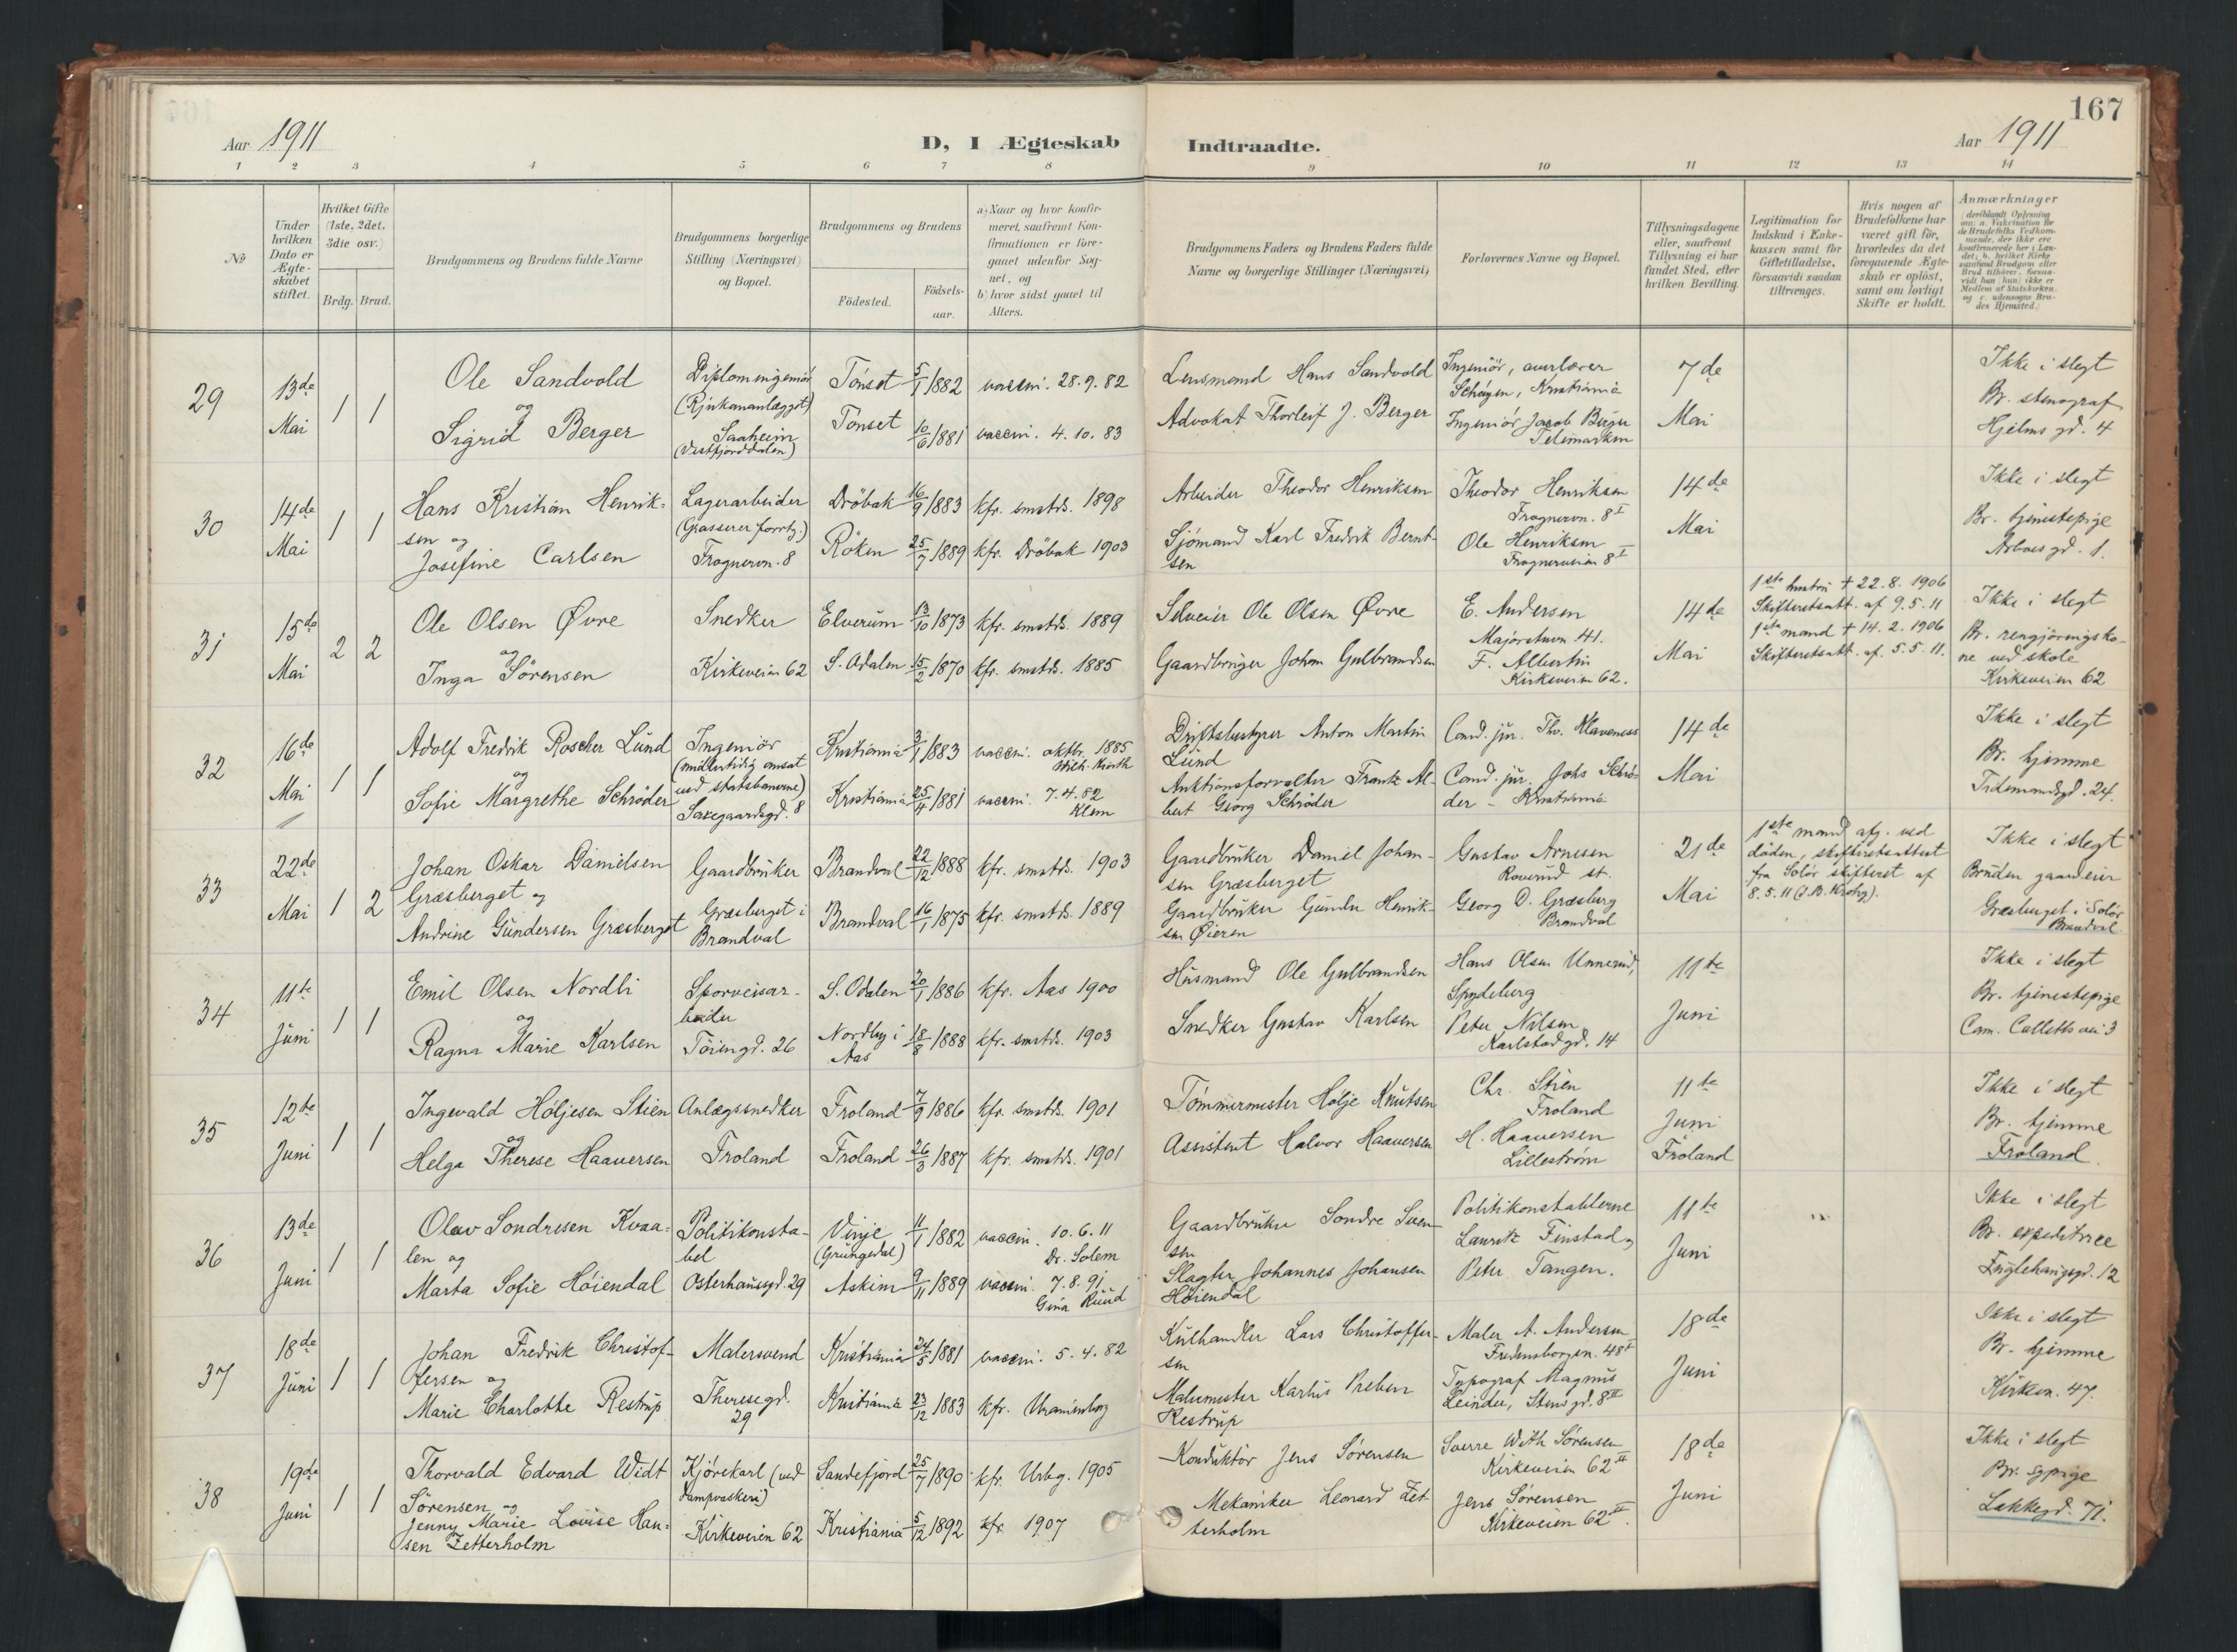 167
Aar 1911
D, I Ægteskab Indtraadte.
Aar 1911
1 2 3 4 5 6 7 8 9 10 11 12 13 14
No
Under hvilken Dato er Ægteskabet stiftet.
Hvilket Gifte (1ste, 2det, 3die osv.)
Brdg. Brud.
Brudgommens og Brudens fulde Navne
Brudgommens borgerlige Stilling (Næringsvei) og Bopæl.
Brudgommens og Brudens
Födested.
Födselsaar.
a) Naar og hvor konfirmeret, saafremt Konfirmationen er foregaaet udenfor Sognet, og
b) hvor sidst gaaet til Alters.
Brudgommens Faders og Brudens Faders fulde Navne og borgerlige Stillinger (Næringsvei)
Forlovernes Navne og Bopæl.
Tillysningsdagene eller, saafremt Tillysning ei har fundet Sted, efter hvilken Bevilling.
Legitimation for Indskud i Enkekassen samt for Giftetilladelse, forsaavidt saadan tiltrænges.
Hvis nogen af Brudefolkene har været gift för, hvorledes da det foregaaende Ægteskab er oplöst, samt om lovligt Skifte er holdt.
Anmærkninger
(deriblandt Oplysning om: a. Vakcination for de Brudefolks Vedkommende, der ikke ere konfirmerede her i Landet; b. hvilket Kirkesamfund Brudgom eller Brud tilhörer, forsaavidt han (hun) ikke er Medlem af Statskirken, og c. udensogns Brudes Hjemsted.)
29
13de Mai
1 1
Ole Sandvold
og
Sigrid Berger
Diplomingeniør
(Rjukananlægget)
Saaheim
(Vestfjorddalen)
Tönset 5/1 1882 vaccin. 28.9.82
Tönset 10/6 1881 vaccin. 4.10.83
Lensmand Hans Sandvold
Advokat Thorleif J. Berger
Ingeniør, overlærer
Kristiania
Ingeniør Jacob Berger
Telemarken
7de Mai
Ikke i slegt
Br. stenograf
Hjelms gd. 4
30
14de Mai
1 1
Hans Kristian Henrik-
sen og
Josefine Carlsen
Lagerarbeider
Frognervn. 8
Dröbak 16/9 1883 kfr. smstds. 1898
Röken 25/7 1889 kfr. Dröbak 1903
Arbeider Theodor Henriksen
Sjömand Karl Fredrik Bernt-
sen
Theodor Henriksen
Frognervn. 8 I
Ole Henriksen
Frognerveien 8 I
14de Mai
Ikke i slegt
Br. tjenestepige
Arboes gd. 1.
31
15de Mai
2 2
Ole Olsen Øvre
og
Inga Sörensen
Snedker
Kirkeveien 62
Elverum 13/10 1873 kfr. smstds. 1889
S. Odalen 15/2 1870 kfr. smstds. 1885
Selveier Ole Olsen Øvre
Gaardbruger Johan Gulbrandsen
E. Andersen
Majorstuvn 41.
F. Albertin
Kirkeveien 62.
14de Mai
1ste hustru † 22.8.1906
Skifteretsatt. af 9.5.11
1ste mand † 14.2.1906
Skifteretsatt. af. 5.5.11.
Ikke i slegt
Br. rengjøringsko-
ne ved skole
Kirkeveien 62
32
16de Mai
1 1
Adolf Fredrik Roscher Lund
og
Sofie Margrethe Schröder
Ingeniør
(midlertidig ansat
ved statsbanerne)
8
Kristiania 3/1 1883 vaccin. oktbr. 1885
Kristiania 25/4 1881 vaccin. 7.4.82
Klem
Driftsbestyrer Anton Martin
Lund
Auktionsforvalter Frantz Al-
bert Georg Schröder
Cand. jur. Th. Klaveness
Cand. jur. Johs Schrö-
der - Kristiania
14de Mai
Ikke i slegt
Br. hjemme
Tidemandsgd. 24.
33
22de Mai
1 2
Johan Oskar Danielsen
Græsberget og
Andrine Gundersen Græsberget
Gaardbruker
Græsberget i
Brandval
Brandval 22/12 1888 kfr. smstds. 1903
Brandval 16/1 1875 kfr. smstds. 1889
Gaardbruker Daniel Johan-
sen Græsberget
Gaardbruker Gunder Henrik-
sen Øieren
Gustav Arnesen
Roverud st.
Georg D. Græsberg
Brandval
21de Mai
1ste mand afg. ved
döden, skifteretsattest
fra Solör skifteret af
8.5.11 (J.B. Krohg).
Ikke i slegt
Bruden gaardeier
Græsberget i Solör
Brandval
34
11te Juni
1 1
Emil Olsen Nordli
og
Ragna Marie Karlsen
Sporveisar-
beider
Töiengd. 26
S. Odalen 20/1 1886 kfr. Aas 1900
Nordby i
Aas 18/8 1888 kfr. smstds. 1903
Husmand Ole Gulbrandsen
Snedker Gustav Karlsen
Hans Olsen Unnerud,
Spydeberg
Peter Nilsen
Karlstadgd. 14
11te Juni
Ikke i slegt
Br. tjenestepige
Cam. Colletts vei 3
35
12te Juni
1 1
Ingevald Höljesen Stien
og
Helga Therese Haaversen
Anlægssnedker
Froland
Froland 7/9 1886 kfr. smstds. 1901
Froland 26/3 1887 kfr. smstds. 1901
Tömmermester Hölje Knutsen
Assistent Halvor Haaversen
Chr. Stien
Froland
H. Haaversen
Lilleström
11te Juni
Froland
Ikke i slegt
Br. hjemme
Froland.
36
13de Juni
1 1
Olav Sondresen Kvaa-
len og
Marta Sofie Höiendal
Politikonsta-
bel
Osterhausgd. 29
Vinje
(Grungedal) 11/1 1882 vaccin. 10.6.11
Dr. Solem
Askim 9/11 1889 vaccin. 7.8.91
Gina Ruud
Gaardbruker Sondre Sven-
sen
Slagter Johannes Johansen
Höiendal
Politikonstablerne
Lauritz Finstad og
Peter Tangen.
11te Juni
Ikke i slegt
Br. expeditrice
Englehaugsgd. 12
37
18de Juni
1 1
Johan Fredrik Christof-
fersen og
Marie Charlotte Restrup
Malersvend
Theresegd.
29
Kristiania 24/5 1881 vaccin. 5.4.82
Kristiania 23/12 1883 kfr. Uranienborg
Kulhandler Lars Christoffer-
sen
Malermester Karlus Preben
Restrup
Maler A. Andersen
Fredensborgvn. 48 I
Typograf Magnus
Leinder, Stensgd. 8 II
18de Juni
Ikke i slegt
Br. hjemme
Kirkevn. 47.
38
19de Juni
1 1
Thorvald Edvard Widt
Sörensen og
Jenny Marie Lovise Han-
sen Zetterholm
Kjörekarl (ved
dampvaskeri)
Kirkeveien 62
Sandefjord 25/7 1890 kfr. Urbg. 1905
Kristiania 5/12 1892 kfr. 1907
Konduktör Jens Sörensen
Mekaniker Leonard Zet-
terholm
Sverre With Sörensen
Kirkeveien 62 II
Jens Sörensen
Kirkeveien 62 II.
18de Juni
Ikke i slegt
Br. sypige
Lakkegd. 71.